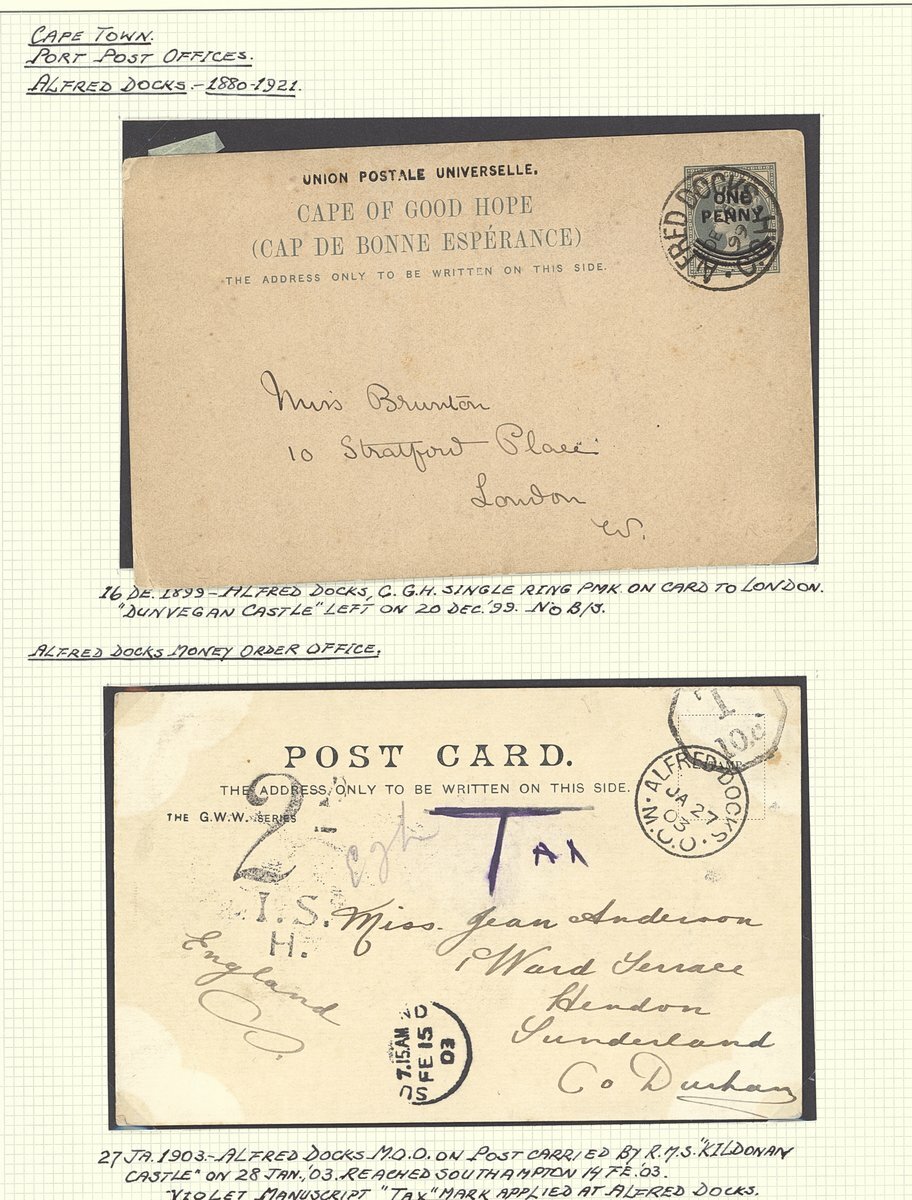 CAPE TOWN.
PORT POST OFFICES.
ALFRED DOCKS.-1880-1921.
UNION POSTALE UNIVERSELLE.
CAPE OF GOOD HOPE
(CAP DE BONNE ESPÉRANCE)
THE ADDRESS ONLY TO BE WRITTEN ON THIS SIDE.
ONE
PENNY
ALFRED DOCKS
DE
99
Miss Brunton
10 Stratford Place
London
W.
16 DE. 1899-ALFRED DOCKS, C.G.H. SINGLE RING PMK ON CARD TO LONDON.
"DUNVEGAN CASTLE" LEFT ON 20 DEC.'99. NO B/S.
ALFRED DOCKS MONEY ORDER OFFICE.
1
10.c
STAMP
POST CARD.
THE ADDRESS ONLY TO BE WRITTEN ON THIS SIDE.
THE G.W.W. SERIES
ALFRED DOCKS. M.O.O.
JA 27
03
2
TAX
I.S.
H.
Miss. Jean Anderson
1 Ward Terrace
Hendon
Sunderland
Co Durham
England
7.15.AM
FE 15
03
27 JA.1903.-ALFRED DOCKS M.O.O. ON POST CARRIED BY R.M.S."KILDONAN
CASTLE" ON 28 JAN.,'03. REACHED SOUTHAMPTON 14 FE.'03.
VIOLET MANUSCRIPT "TAX" MARK APPLIED AT ALFRED DOCKS.